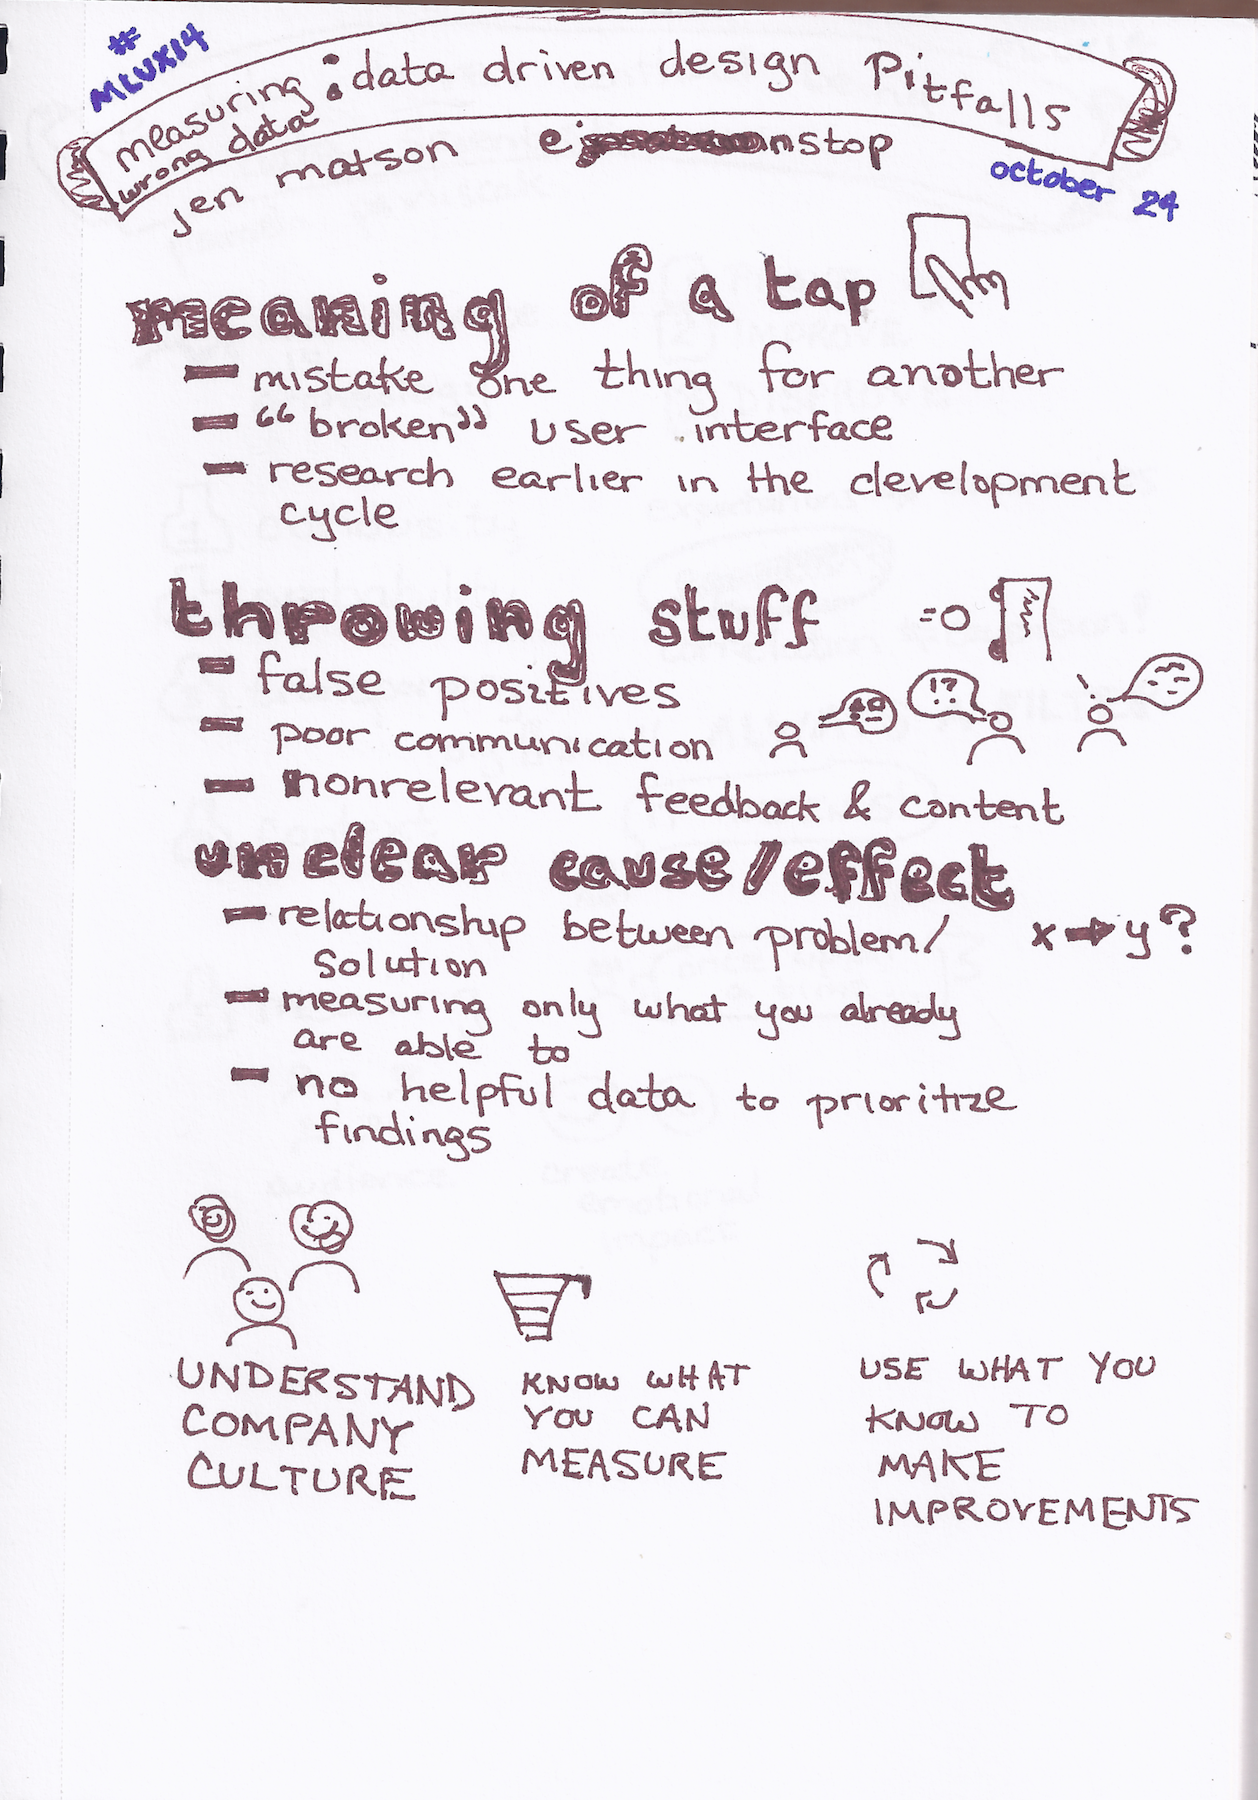 #
MLUX14
measuring : data driven design Pitfalls
wrong data
jen matson nstop
october 24
meaning of a tap
- mistake one thing for another
- “broken” user interface
- research earlier in the development
cycle
throwing stuff =0
- false positives
!?
- poor communication
- nonrelevant feedback & content
unclear cause/effect
- relationship between problem/
solution
x → y?
- measuring only what you already
are able to
- no helpful data to prioritize
findings
UNDERSTAND
COMPANY
CULTURE
KNOW WHAT
YOU CAN
MEASURE
USE WHAT YOU
KNOW TO
MAKE
IMPROVEMENTS